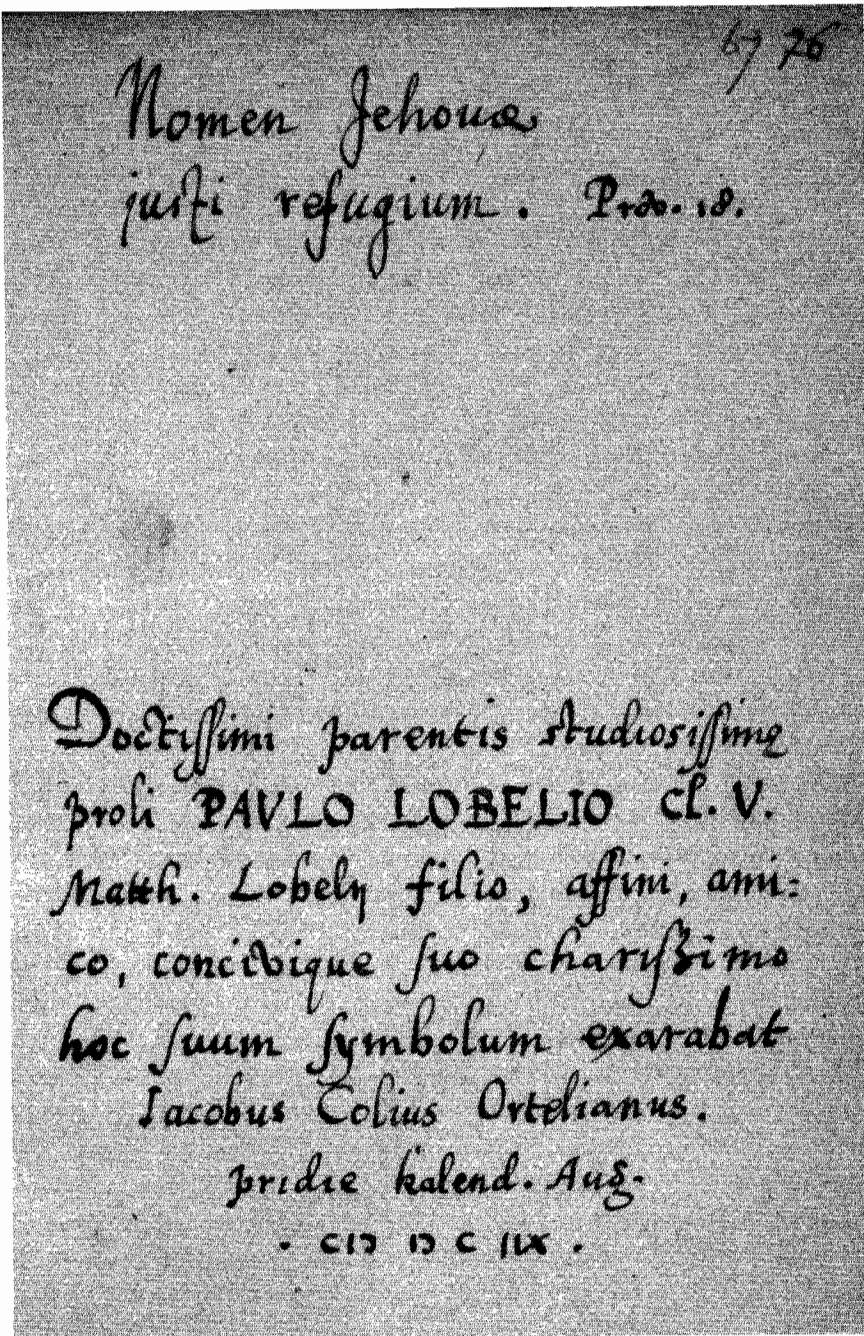 67 76
Nomen Jehouæ
justi refugium. Prov. 18.
Doctissimi parentis studiosissimæ
proli PAVLO LOBELIO Cl. V.
Matth. Lobelij filio, affini, ami:
co, concivique suo charissimo
hoc suum symbolum exarabat
Jacobus Colius Ortelianus.
pridie kalend. Aug.
. CIↃ IↃ C IIX .